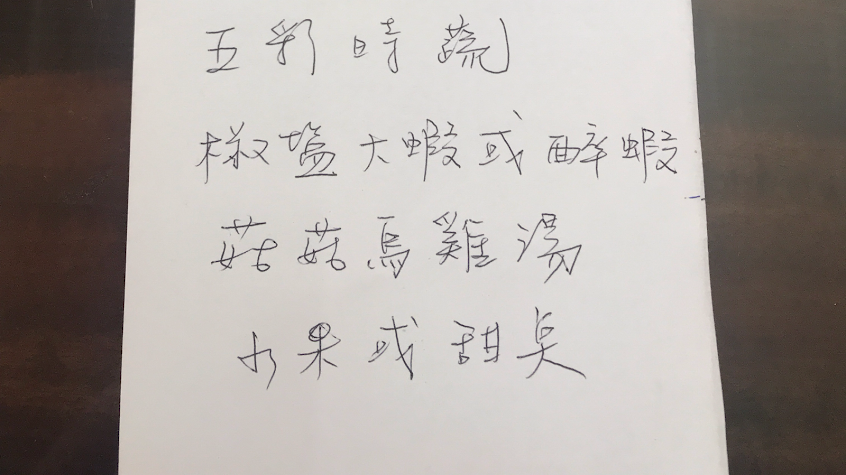 五彩時蔬
椒塩大蝦或醉蝦
菇菇烏雞湯
水果或甜点